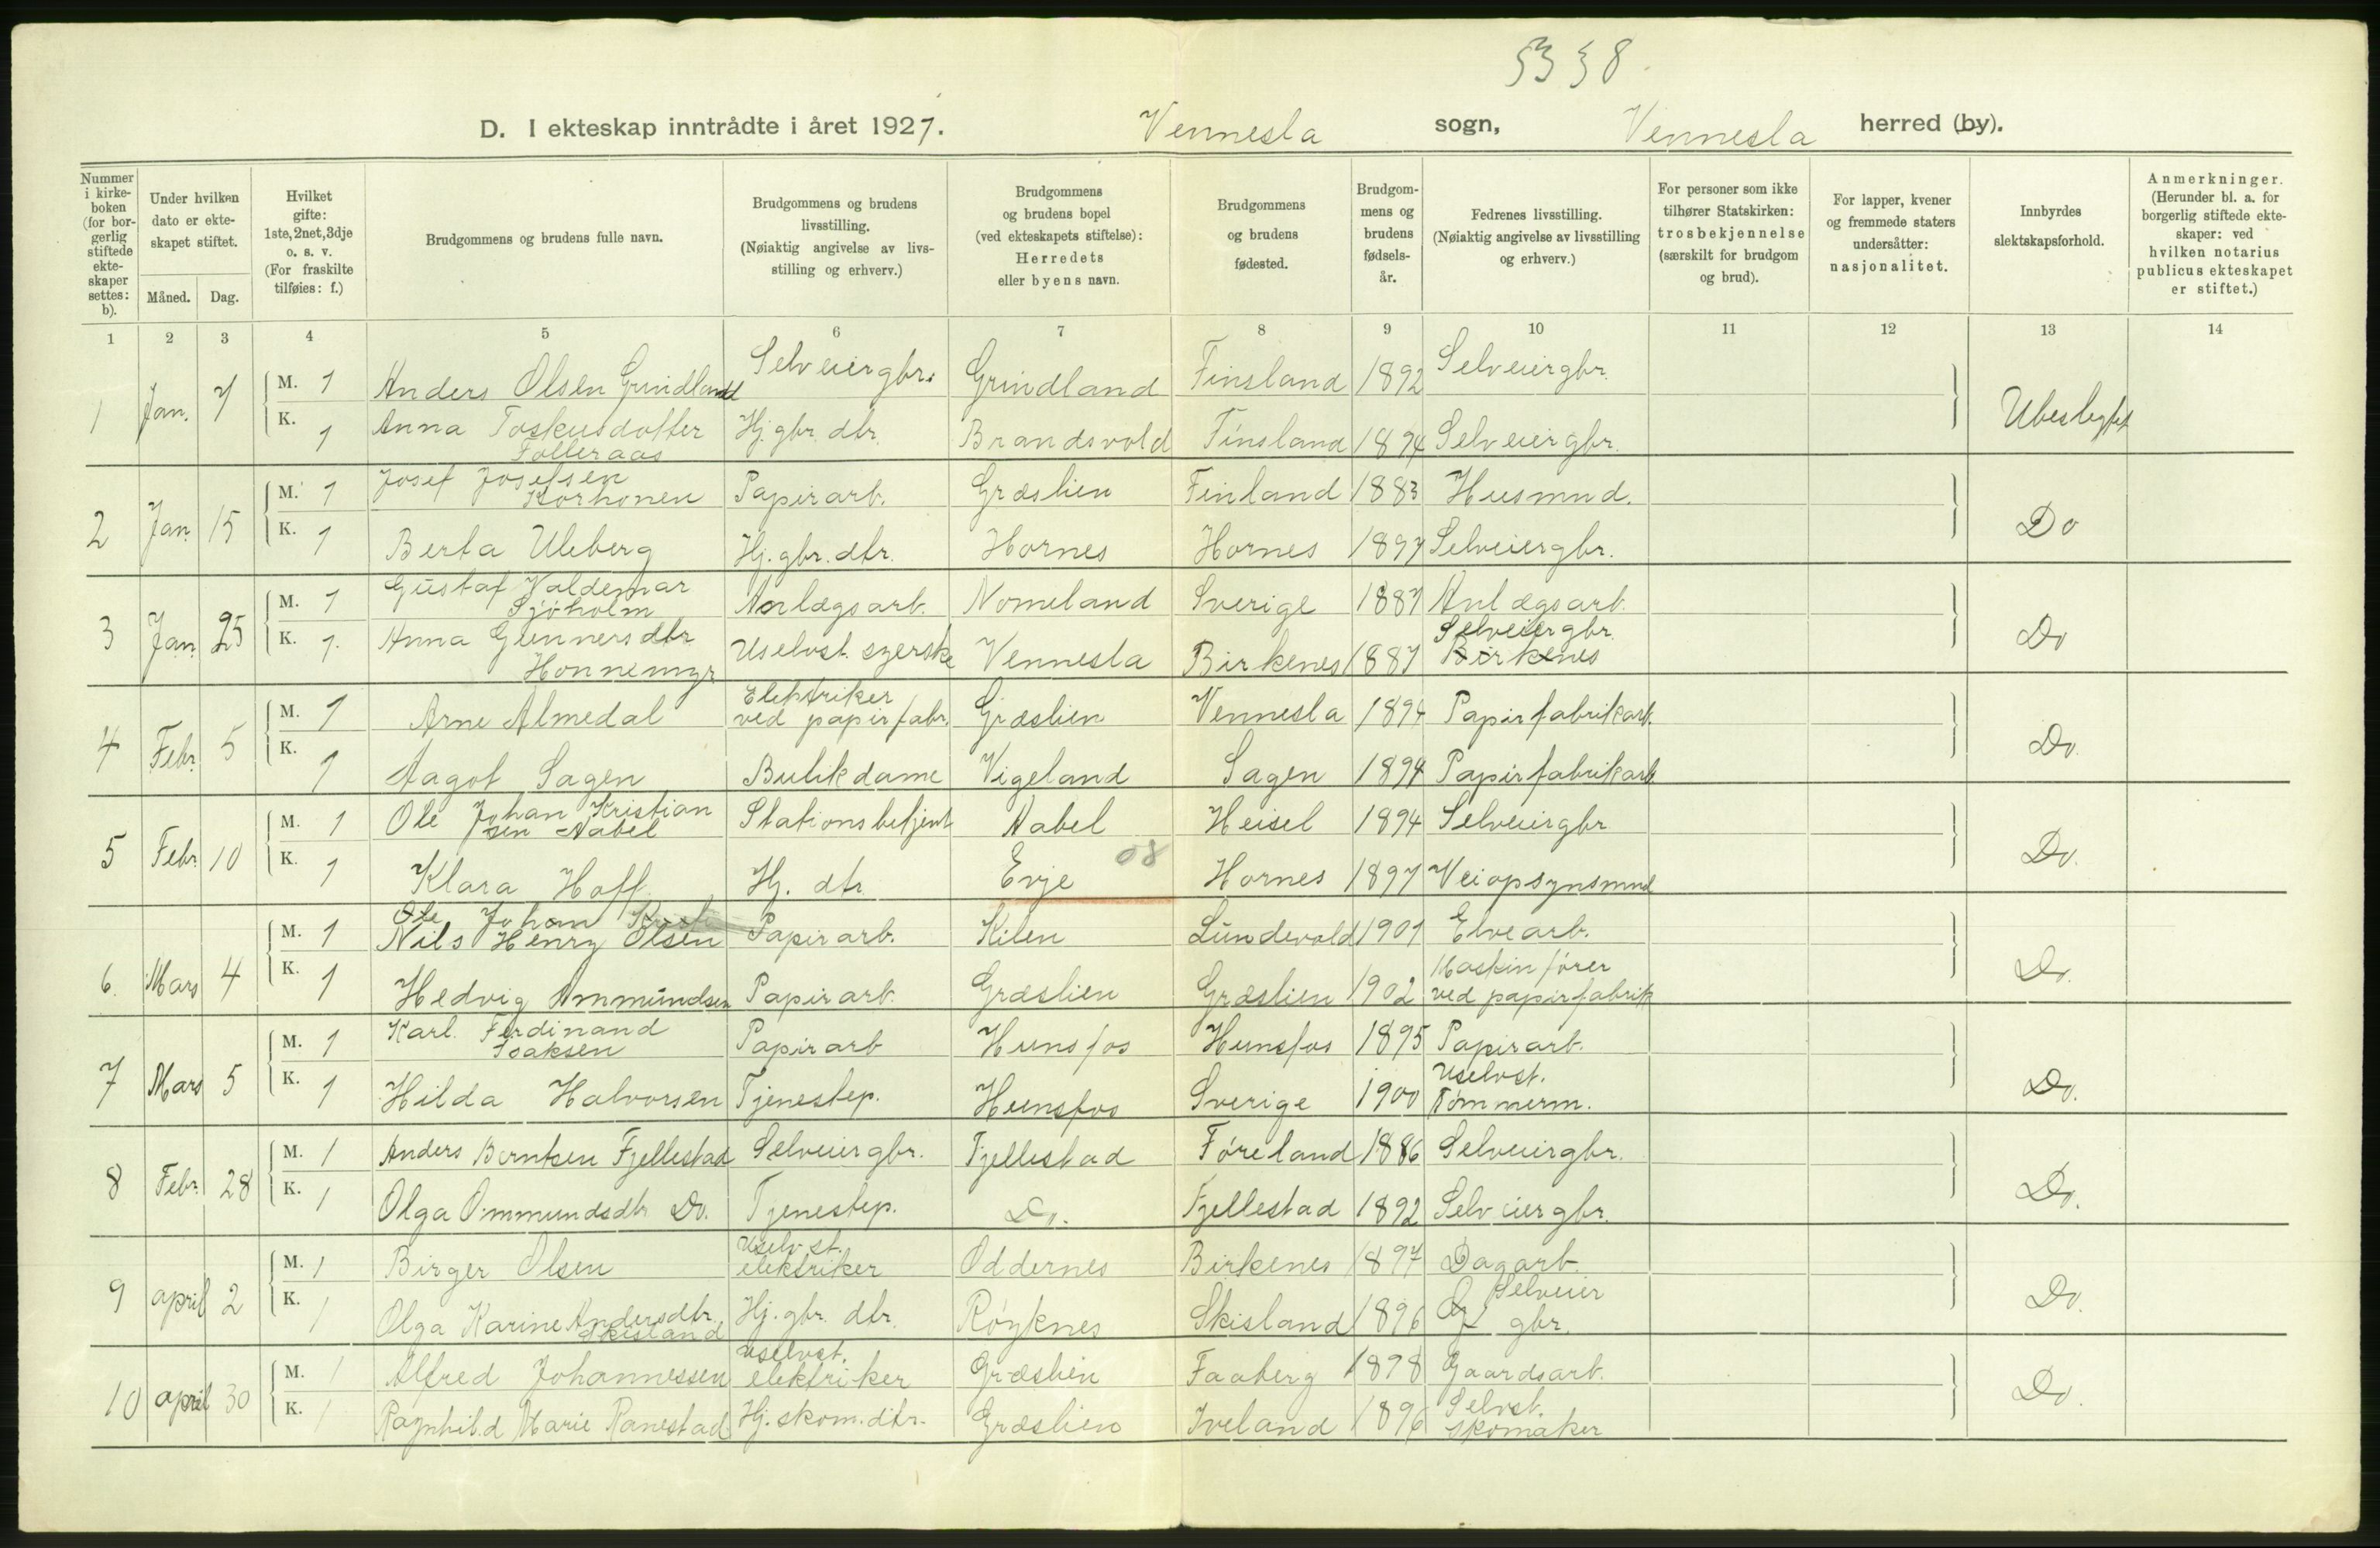 5338.
D. I ekteskap inntrådte i året 1927. Vennesla sogn, Vennesla herred (by).
Nummer i kirkeboken (for borgerlig stiftede ekteskaper settes: b).
Under hvilken dato er ekteskapet stiftet.
Måned. Dag.
Hvilket gifte: 1ste, 2net, 3dje o. s. v. (For fraskilte tilføies: f.)
Brudgommens og brudens fulle navn.
Brudgommens og brudens livsstilling. (Nøiaktig angivelse av livsstilling og erhverv.)
Brudgommens og brudens bopel (ved ekteskapets stiftelse): Herredets eller byens navn.
Brudgommens og brudens fødested.
Brudgommens og brudens fødselsår.
Fedrenes livsstilling. (Nøiaktig angivelse av livsstilling og erhverv.)
For personer som ikke tilhører Statskirken: trosbekjennelse (særskilt for brudgom og brud).
For lapper, kvener og fremmede staters undersåtter: nasjonalitet.
Innbyrdes slektskapsforhold.
Anmerkninger. (Herunder bl. a. for borgerlig stiftede ekteskaper: ved hvilken notarius publicus ekteskapet er stiftet.)
1 2 3 4 5 6 7 8 9 10 11 12 13 14
1 Jan. 7 M. 1 Anders Olsen Grindland Selveiergbr. Grindland Finsland 1892 Selveiergbr. Ubeslegtet
K. 1 Anna Toskusdotter Folleraas Hj. gbr. dtr. Brandsvold Finsland 1894 Selveiergbr.
2 Jan. 15 M. 1 Josef Josefsen Korhonen Papirarb. Græslien Finland 1883 Husmnd. Do
K. 1 Berta Uleberg Hj. gbr. dtr. Hornes Hornes 1897 Selveiergbr.
3 Jan. 25 M. 1 Gustaf Valdemar Sjøholm Anlægsarb. Nomeland Sverige 1887 Anlægsarb. Do
K. 1. Anna Gunnersdtr. Honnemyr Uselvst. syerske Vennesla Birkenes 1887 Selveiergbr. Birkenes
4 Febr. 5 M. 1 Arne Almedal Elektriker ved papirfabr. Græslien Vennesla 1894 Papirfabrikarb. Do.
K. 1 Aagot Sagen Butikdame Vigeland Sagen 1894 Papirfabrikarb.
5 Febr. 10 M. 1 Ole Johan Kristiansen Aabel Stationsbetjent Aabel Heisel 1894 Selveiergbr Do.
K. 1 Klara Hoff. Hj. dtr. Evje 08 Hornes 1897 Veiopsynsmnd
6. Mars 4 M. 1 Ole Johan Nils Henry Olsen Papirarb. Kilen Lundevold 1901 Elvearb. Do.
K. 1 Hedvig Ammundsen Papirarb. Græslien Græslien 1902 Maskinfører ved papirfabrik
7 Mars 5 M. 1 Karl. Ferdinand Isaksen Papirarb Hunsfos Hunsfos 1895 Papirarb. Do.
K. 1 Hilda Halvorsen Tjenestep. Hunsfos Sverige 1900 Uselvst. Tømmerm.
8 Febr. 28 M. 1 Anders Berntsen Fjellestad Selveiergbr. Fjellestad Føreland 1886 Selveiergbr. Do.
K. 1 Olga Ommundsdtr Do. Tjenestep. Do. Fjellestad 1892 Selveiergbr.
9 april 2 M. 1 Birger Olsen Uselvst. elektriker Oddernes Birkenes 1897 Dagarb. Do.
K. 1 Olga Karine Andersdtr. Skisland Hj. gbr. dtr. Røyknes Skisland 1896 Selveier gbr.
10 april 30 M. 1 Alfred Johannessen Uselvst. elektriker Græslien Faaberg 1898 Gaardsarb. Do.
K. 1 Ragnhild Marie Ranestad Hj. skom. dtr. Græslien Iveland 1896 Selvst. skomaker